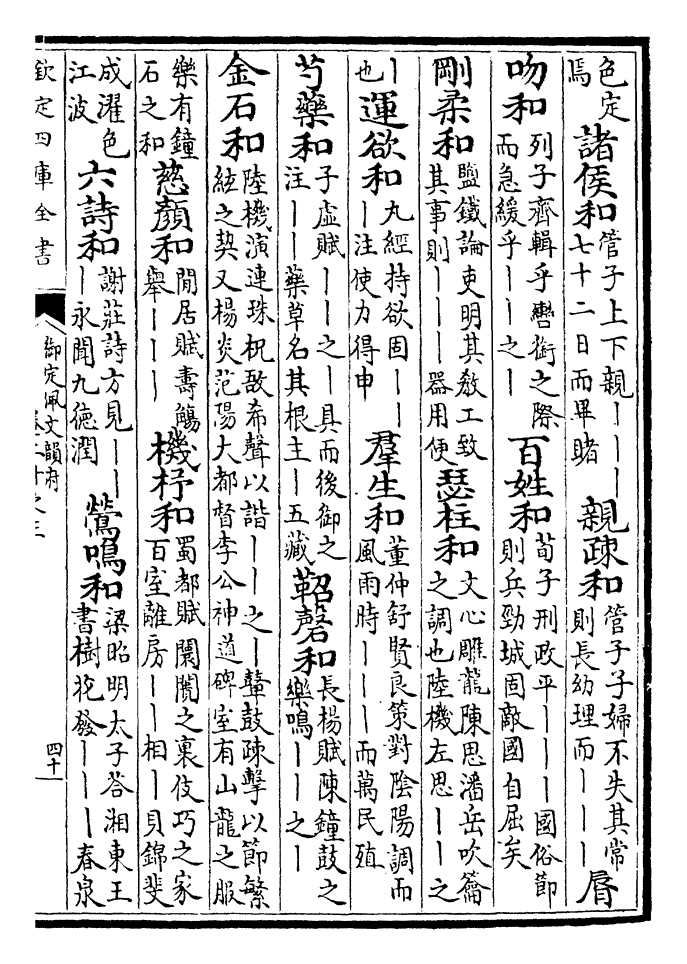 色定焉 諸侯和 管子上下親｜｜｜七十二日而畢睹 親疎和 管子子婦不失其常則長幼理而｜｜｜ 脣
吻和 列子齊輯乎轡銜之際而急緩乎｜｜之｜ 百姓和 荀子刑政平｜｜｜國俗節則兵勁城固敵國自屈矣
剛柔和 鹽鐵論吏明其教工致其事則｜｜｜器用便 瑟柱和 文心雕龍陳思潘岳吹籥之調也陸機左思｜｜之
｜也 運欲和 九經持欲固｜｜｜注使力得申 羣生和 董仲舒賢良策對陰陽調而風雨時｜｜｜而萬民殖
芍藥和 子虛賦｜｜之｜具而後御之注｜｜藥草名其根主｜五藏 鞀磬和 長楊賦陳鐘鼓之樂鳴｜｜之｜
金石和 陸機演連珠柷敔希聲以諧｜｜之｜鼛鼓疎擊以節繁絃之契又楊炎范陽大都督李公神道碑室有山龍之服
樂有鐘石之和 慈顏和 閒居賦壽觴舉｜｜｜ 機杼和 蜀都賦闤闠之裏伎巧之家百室離房｜｜相｜貝錦斐
成濯色江波 六詩和 謝莊詩方見｜｜｜永聞九德潤 鶯鳴和 梁昭明太子答湘東王書樹花發｜｜｜春泉
欽定四庫全書
御定佩文韻府
卷二十之三
四十